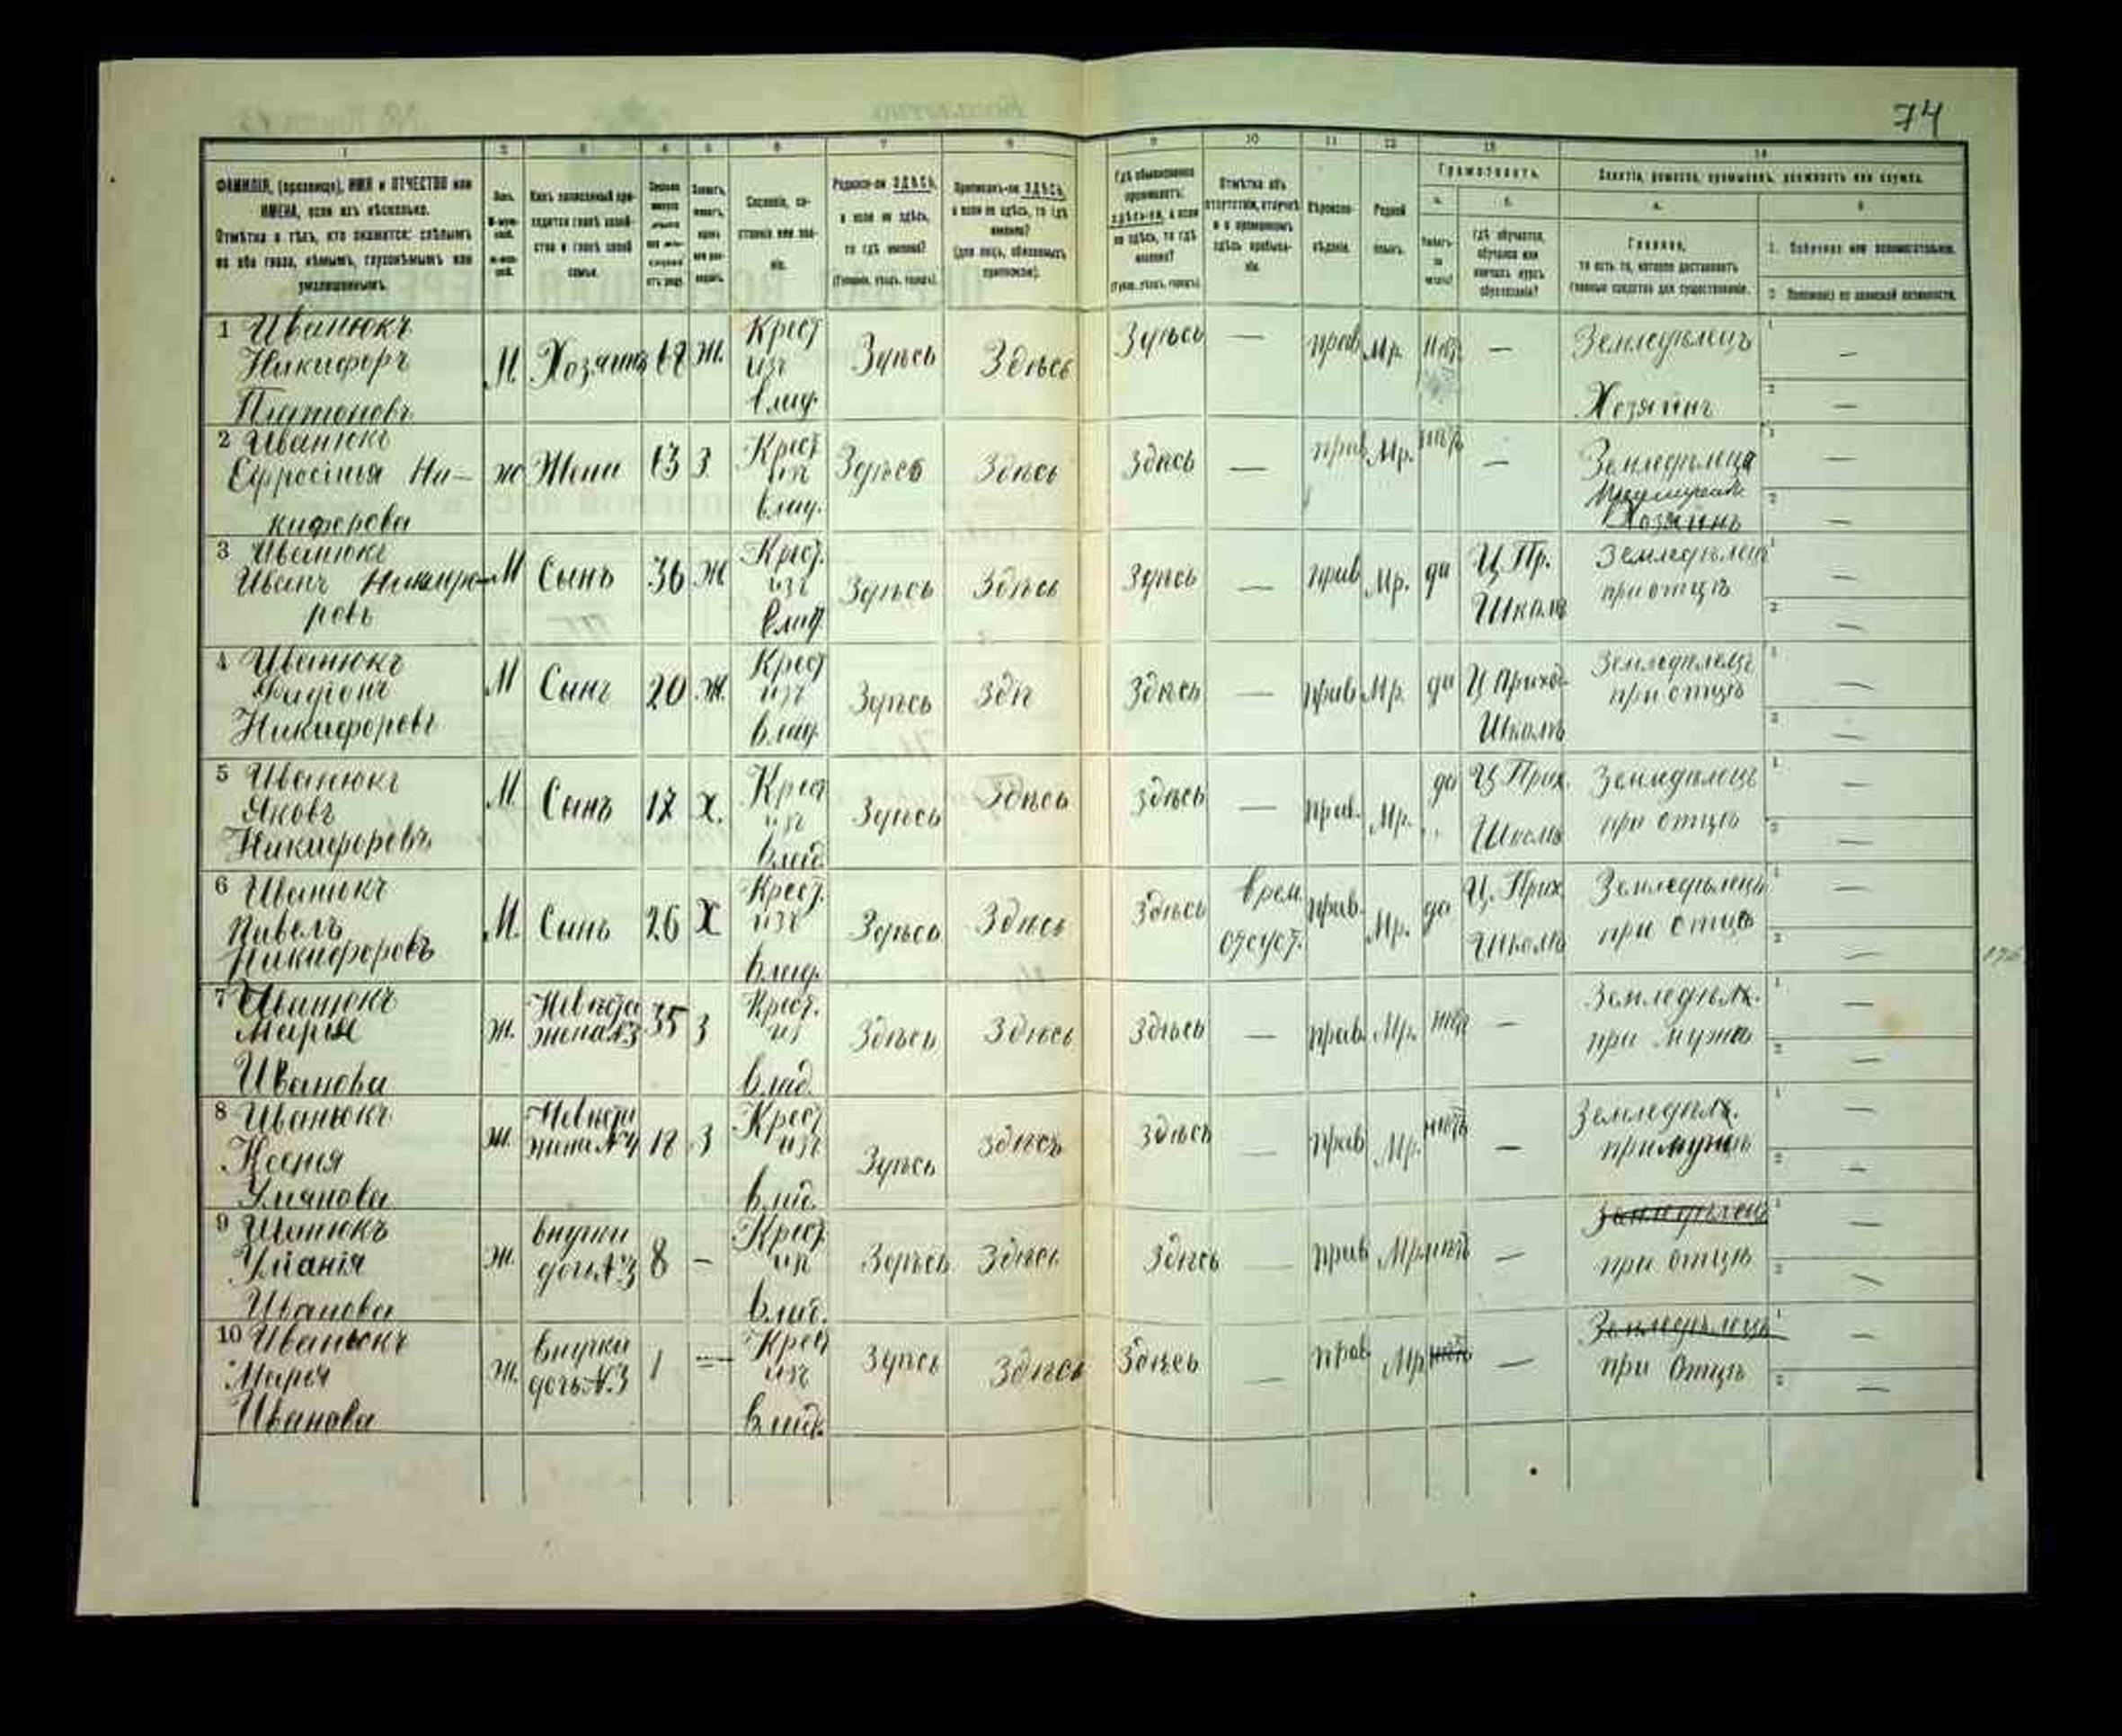 74
1 2 3 4 5 6 7 8 9 10 11 12 13 14
ФАМИЛІЯ, (прозвище), ИМЯ и ОТЧЕСТВО или
ИМЕНА, если ихъ нѣсколько.
Отмѣтка о тѣхъ, кто окажется: слѣпымъ
на оба глаза, нѣмымъ, глухонѣмымъ или
умалишеннымъ.
Родился-ли ЗДѢСЬ,
а если не здѣсь,
то гдѣ именно?
(Губернія, уѣздъ, городъ).
Приписанъ-ли ЗДѢСЬ,
а если не здѣсь, то гдѣ
именно?
(для лицъ, обязанныхъ
припискою).
Гдѣ обыкновенно
проживаетъ:
здѣсь-ли, а если
не здѣсь, то гдѣ
именно?
(Губ., уѣздъ, городъ).
Отмѣтка объ
отсутствіи, отлучкѣ
и о временномъ
здѣсь пребыва-
ніи.
Вѣроиспо-
вѣданіе.
Родной
языкъ.
Грамотность.
а. б.
Умѣетъ-
ли
читать?
Гдѣ обучается,
обучался или
кончилъ курсъ
образованія?
Занятіе, ремесло, промыселъ, должность или служба.
а. б.
Главное,
то есть то, которое доставляетъ
главныя средства для существованія.
1. Побочное или вспомогательное.
2. Положеніе по воинской повинности.
1 Иванюкъ
Никифоръ М. Хозяинъ Ж. Крест изъ влад. Здѣсь Здѣсь Здѣсь — прав Мр. нѣтъ — Земледѣлецъ —
Платоновъ Хозяинъ —
2 Иванюкъ
Ефросинья Ни- ж Жена З. Крест изъ влад. Здѣсь Здѣсь Здѣсь — прав Мр. нѣтъ — Земледѣлица —
киферова Хозяинъ —
3 Иванюкъ
Иванъ Никифо- М Сынъ 36 Ж Крест. изъ влад Здѣсь Здѣсь Здѣсь — прав Мр. да Ц Пр. Школѣ Земледѣлецъ при отцѣ —
ровъ —
4 Иванюкъ
М Сынъ 20 Ж. Крест изъ влад. Здѣсь Здѣ Здѣсь — прав Мр. да Ц Приход Школѣ Земледѣлецъ при отцѣ —
Никифоровъ —
5 Иванюкъ
Яковъ М Сынъ 17 Х. Крест изъ влад. Здѣсь Здѣсь Здѣсь — прав. Мр. да Ц Прих. Школѣ Земледѣлецъ при отцѣ —
Никифоровъ —
6 Иванюкъ
Павелъ М. Сынъ 26 Х Крест. изъ влад. Здѣсь Здѣсь Здѣсь врем. отсуст. прав. Мр. да Ц. Прих Школѣ Земледѣлецъ при отцѣ —
Никифоровъ —
7 Иванюкъ
Марія ж. Невѣста жена №3 35 З Крест. из влад. Здѣсь Здѣсь Здѣсь — прав Мр. нѣтъ — Земледѣл. при мужѣ —
Иванова —
8 Иванюкъ
Ксенія ж. Невѣста жена №4 18 З Крест изъ влад. Здѣсь Здѣсь Здѣсь — прав Мр. нѣтъ — Земледѣл. при мужѣ —
Улянова —
9 Иванюкъ
Уліанія ж. внучка дочь №3 8 — Крест изъ влад. Здѣсь Здѣсь Здѣсь — прав Мр нѣтъ — Земледѣлецъ при отцѣ —
Иванова —
10 Иванюкъ
Марія ж. внучка дочь №3 1 — Крест изъ влад. Здѣсь Здѣсь Здѣсь — прав Мр нѣтъ — Земледѣлецъ при отцѣ —
Иванова —